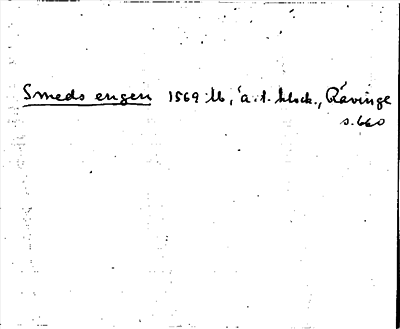 Smeds engen 1569 lb, å.t. klock., Rävinge
s. 660